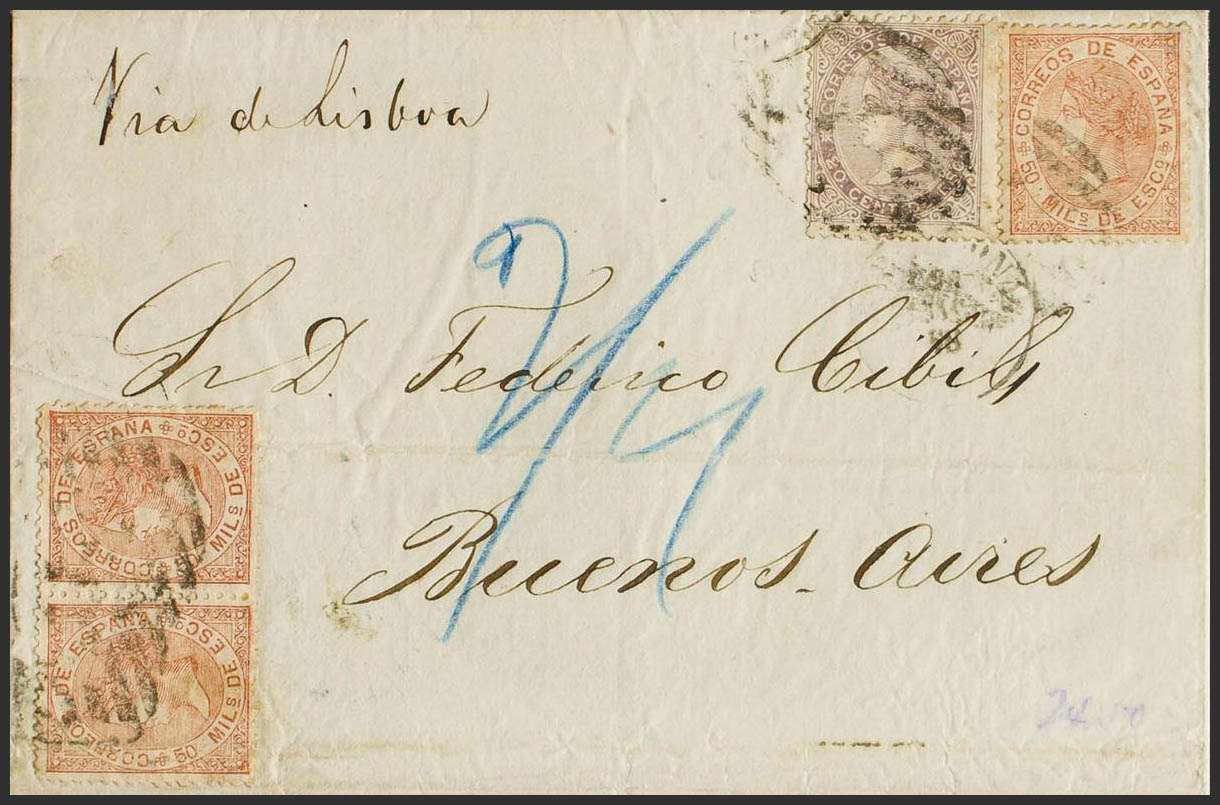 Via de Lisboa
CORREOS DE ESPAÑA
20 CENT
CORREOS DE ESPAÑA
50 MILS DE ESCO
Sr D. Federico Cibils
Buenos-Aires
CORREOS DE ESPAÑA
50 MILS DE ESCO
CORREOS DE ESPAÑA
50 MILS DE ESCO